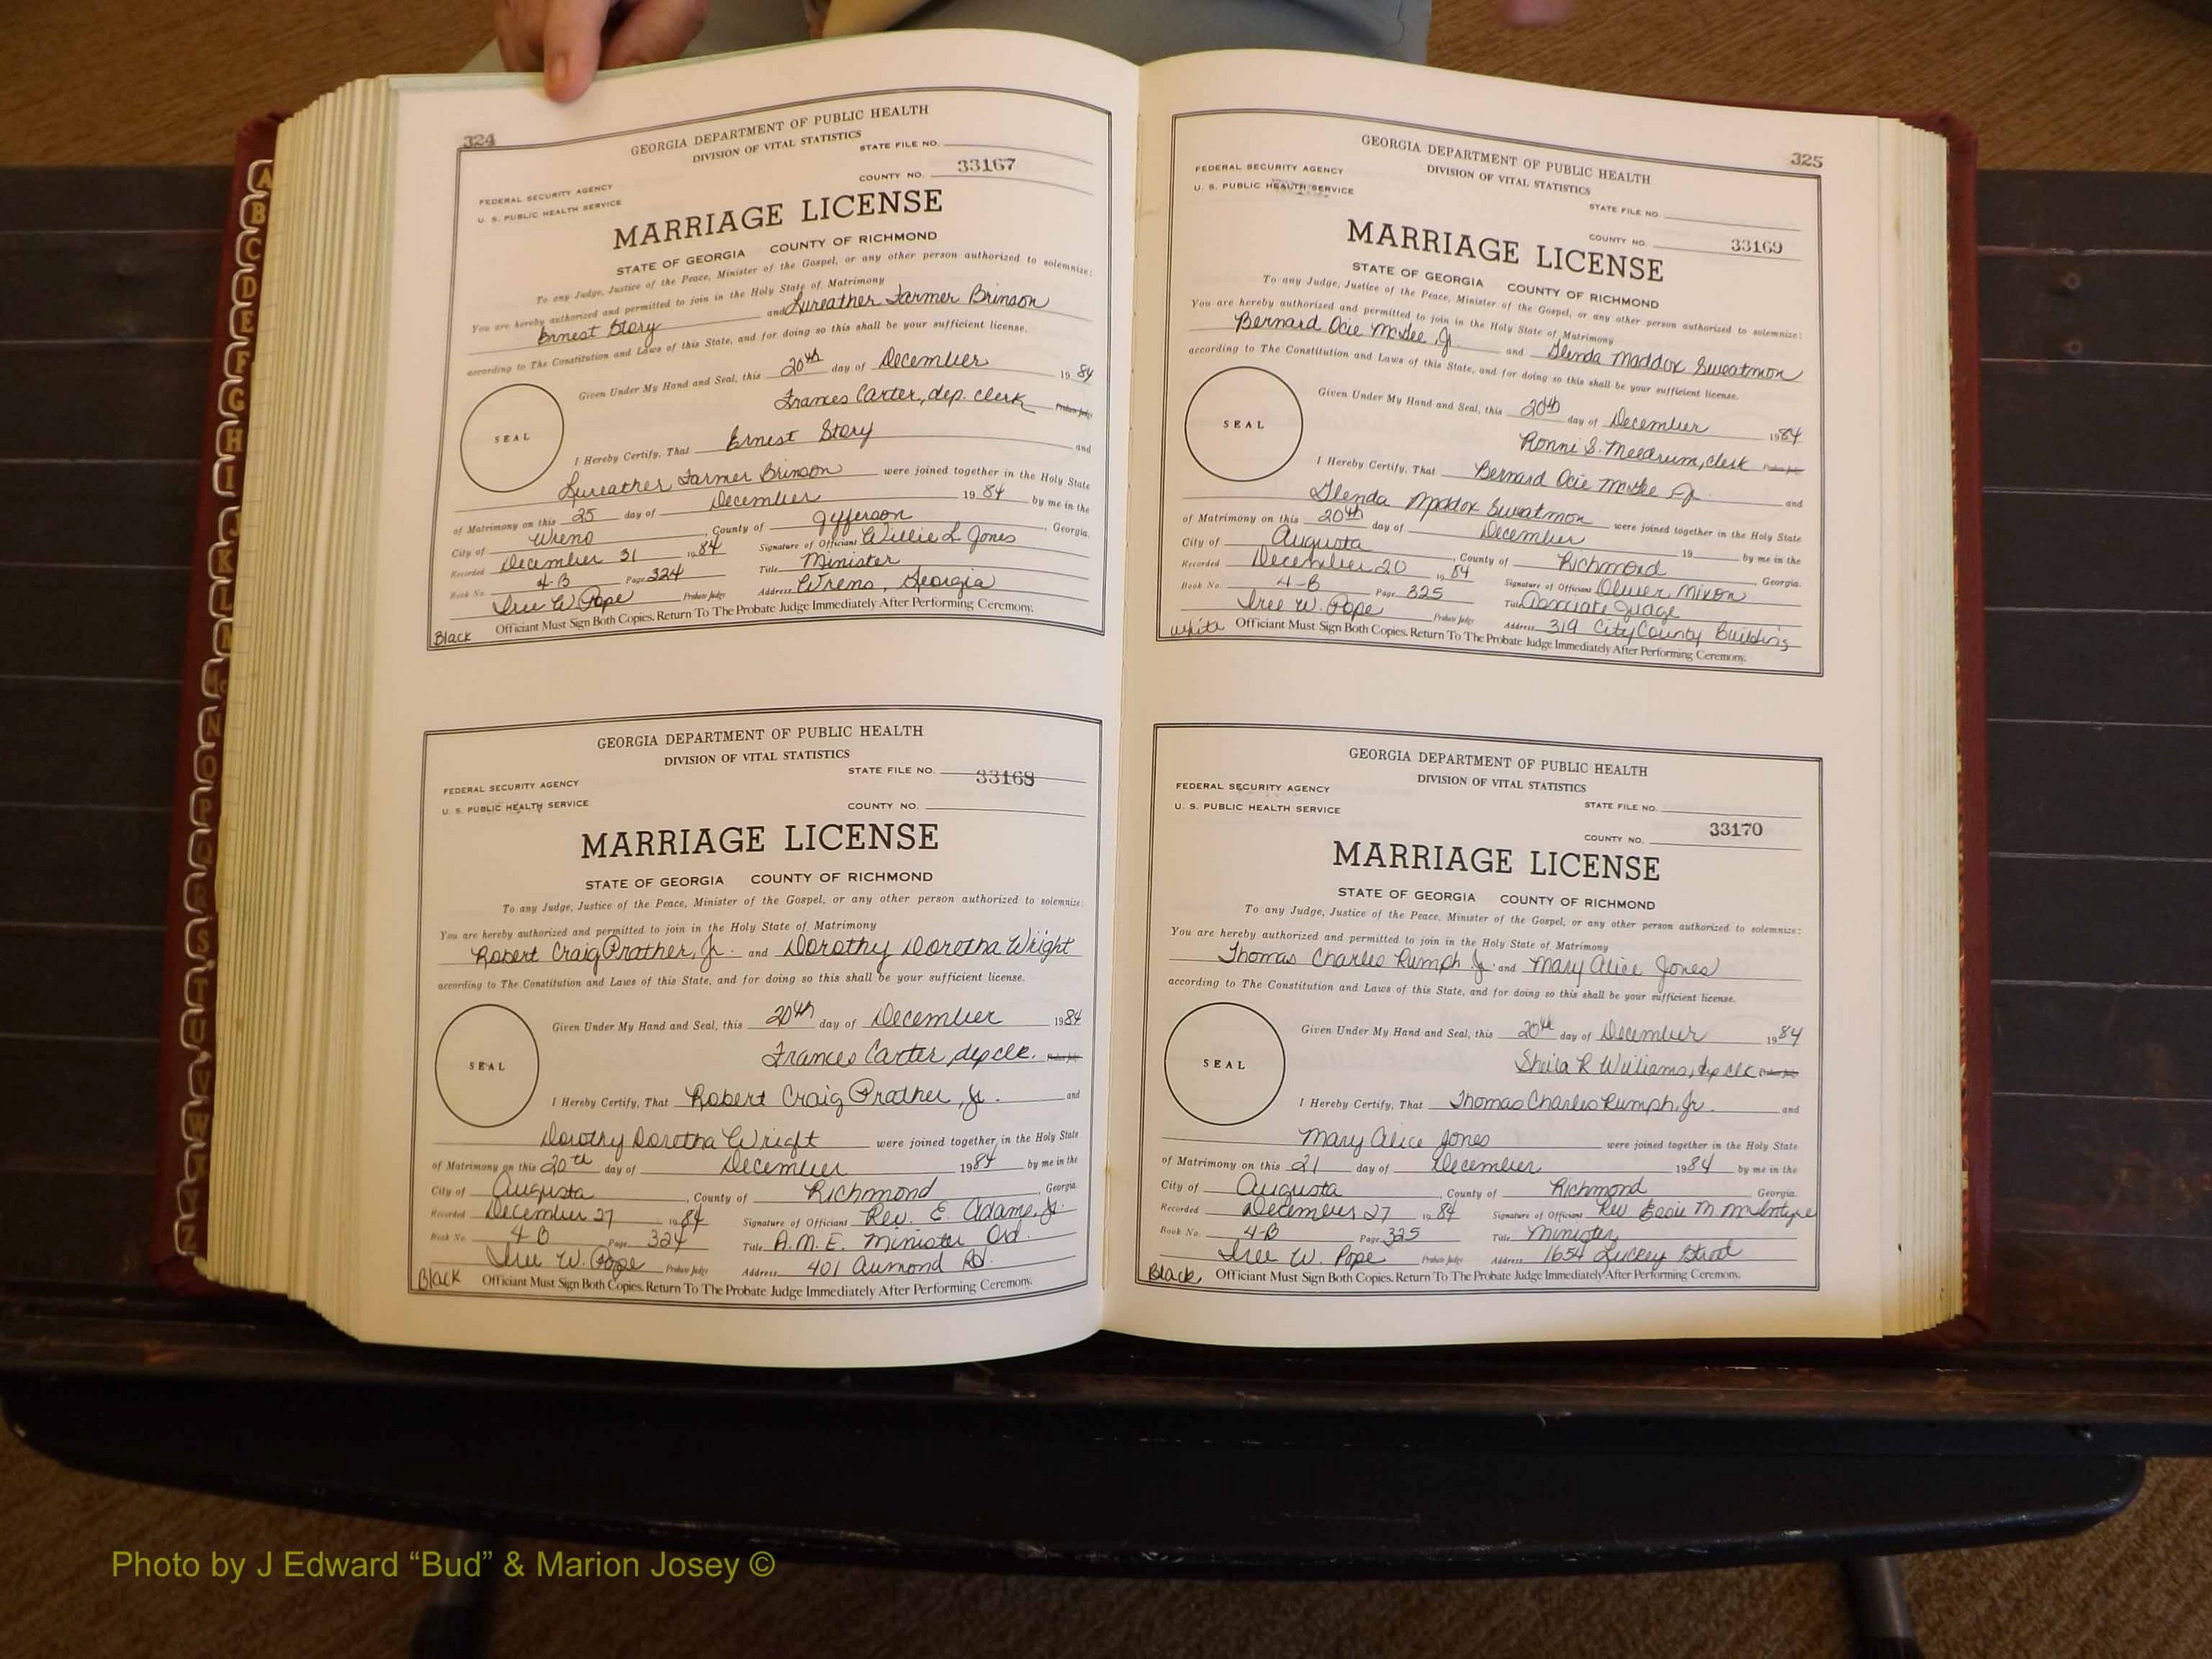 A
B
C
D
E
F
G
H
I
J
K
L
M
N
O
P
Q
R
S
T
U
V
W
Z
324
GEORGIA DEPARTMENT OF PUBLIC HEALTH
DIVISION OF VITAL STATISTICS
STATE FILE NO.
FEDERAL SECURITY AGENCY
U. S. PUBLIC HEALTH SERVICE
COUNTY NO. 33167
MARRIAGE LICENSE
STATE OF GEORGIA COUNTY OF RICHMOND
To any Judge, Justice of the Peace, Minister of the Gospel, or any other person authorized to solemnize:
You are hereby authorized and permitted to join in the Holy State of Matrimony
Ernest Story and Lureather Farmer Brinson
according to The Constitution and Laws of this State, and for doing so this shall be your sufficient license.
Given Under My Hand and Seal, this 20th day of December 1984
Frances Carter, dep. clerk Probate Judge
SEAL
I Hereby Certify, That Ernest Story and
Lureather Farmer Brinson were joined together in the Holy State
of Matrimony on this 25 day of December 1984 by me in the
City of Wrens, County of Jefferson, Georgia.
Recorded December 31 1984 Signature of Officiant Willie L Jones
Book No. 4-B Page 324 Title Minister
W. Pope Probate Judge Address Wrens, Georgia
Black Officiant Must Sign Both Copies. Return To The Probate Judge Immediately After Performing Ceremony.
GEORGIA DEPARTMENT OF PUBLIC HEALTH
DIVISION OF VITAL STATISTICS
STATE FILE NO. 33168
FEDERAL SECURITY AGENCY
U. S. PUBLIC HEALTH SERVICE
COUNTY NO.
MARRIAGE LICENSE
STATE OF GEORGIA COUNTY OF RICHMOND
To any Judge, Justice of the Peace, Minister of the Gospel, or any other person authorized to solemnize:
You are hereby authorized and permitted to join in the Holy State of Matrimony
Robert Craig Prather, Jr. and Dorothy Dorotha Wright
according to The Constitution and Laws of this State, and for doing so this shall be your sufficient license.
Given Under My Hand and Seal, this 20th day of December 1984
Frances Carter, dep clk. Probate Judge
SEAL
I Hereby Certify, That Robert Craig Prather, Jr. and
Dorothy Dorotha Wright were joined together in the Holy State
of Matrimony on this 20th day of December 1984 by me in the
City of Augusta, County of Richmond, Georgia.
Recorded December 27 1984 Signature of Officiant Rev. E. Adams, Jr.
Book No. 4-B Page 324 Title A.M.E. Minister Ord.
W. Pope Probate Judge Address 401 Aumond Rd.
Black Officiant Must Sign Both Copies. Return To The Probate Judge Immediately After Performing Ceremony.
325
GEORGIA DEPARTMENT OF PUBLIC HEALTH
DIVISION OF VITAL STATISTICS
FEDERAL SECURITY AGENCY
U. S. PUBLIC HEALTH SERVICE
STATE FILE NO.
COUNTY NO. 33169
MARRIAGE LICENSE
STATE OF GEORGIA COUNTY OF RICHMOND
To any Judge, Justice of the Peace, Minister of the Gospel, or any other person authorized to solemnize:
You are hereby authorized and permitted to join in the Holy State of Matrimony
Bernard Ocie McGee Jr. and Glenda Maddox Sweatmon
according to The Constitution and Laws of this State, and for doing so this shall be your sufficient license.
Given Under My Hand and Seal, this 20th day of December 1984
Ronni S. Meedrum, clerk Probate Judge
SEAL
I Hereby Certify, That Bernard Ocie McGee Jr. and
Glenda Maddox Sweatmon were joined together in the Holy State
of Matrimony on this 20th day of December 19 by me in the
City of Augusta, County of Richmond Georgia.
Recorded December 20 1984 Signature of Officiant Oliver Mixon
Book No. 4-B Page 325 Title Associate Judge
W. Pope Probate Judge Address 319 City County Building
White Officiant Must Sign Both Copies. Return To The Probate Judge Immediately After Performing Ceremony.
GEORGIA DEPARTMENT OF PUBLIC HEALTH
DIVISION OF VITAL STATISTICS
FEDERAL SECURITY AGENCY
U. S. PUBLIC HEALTH SERVICE
STATE FILE NO.
COUNTY NO. 33170
MARRIAGE LICENSE
STATE OF GEORGIA COUNTY OF RICHMOND
To any Judge, Justice of the Peace, Minister of the Gospel, or any other person authorized to solemnize:
You are hereby authorized and permitted to join in the Holy State of Matrimony
Thomas Charles Rumph Jr. and Mary Alice Jones
according to The Constitution and Laws of this State, and for doing so this shall be your sufficient license.
Given Under My Hand and Seal, this 20th day of December 1984
Sheila R Williams, dep clk Probate Judge
SEAL
I Hereby Certify, That Thomas Charles Rumph, Jr. and
Mary Alice Jones were joined together in the Holy State
of Matrimony on this 21 day of December 1984 by me in the
City of Augusta, County of Richmond Georgia.
Recorded December 27 1984 Signature of Officiant Rev Essie M. McIntyre
Book No. 4-B Page 325 Title Minister
W. Pope Probate Judge Address 1654 Luckey Street
Black Officiant Must Sign Both Copies. Return To The Probate Judge Immediately After Performing Ceremony.
Photo by J Edward “Bud” & Marion Josey ©